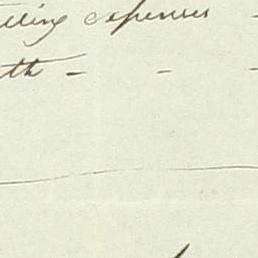 elling expenses -
th - - -